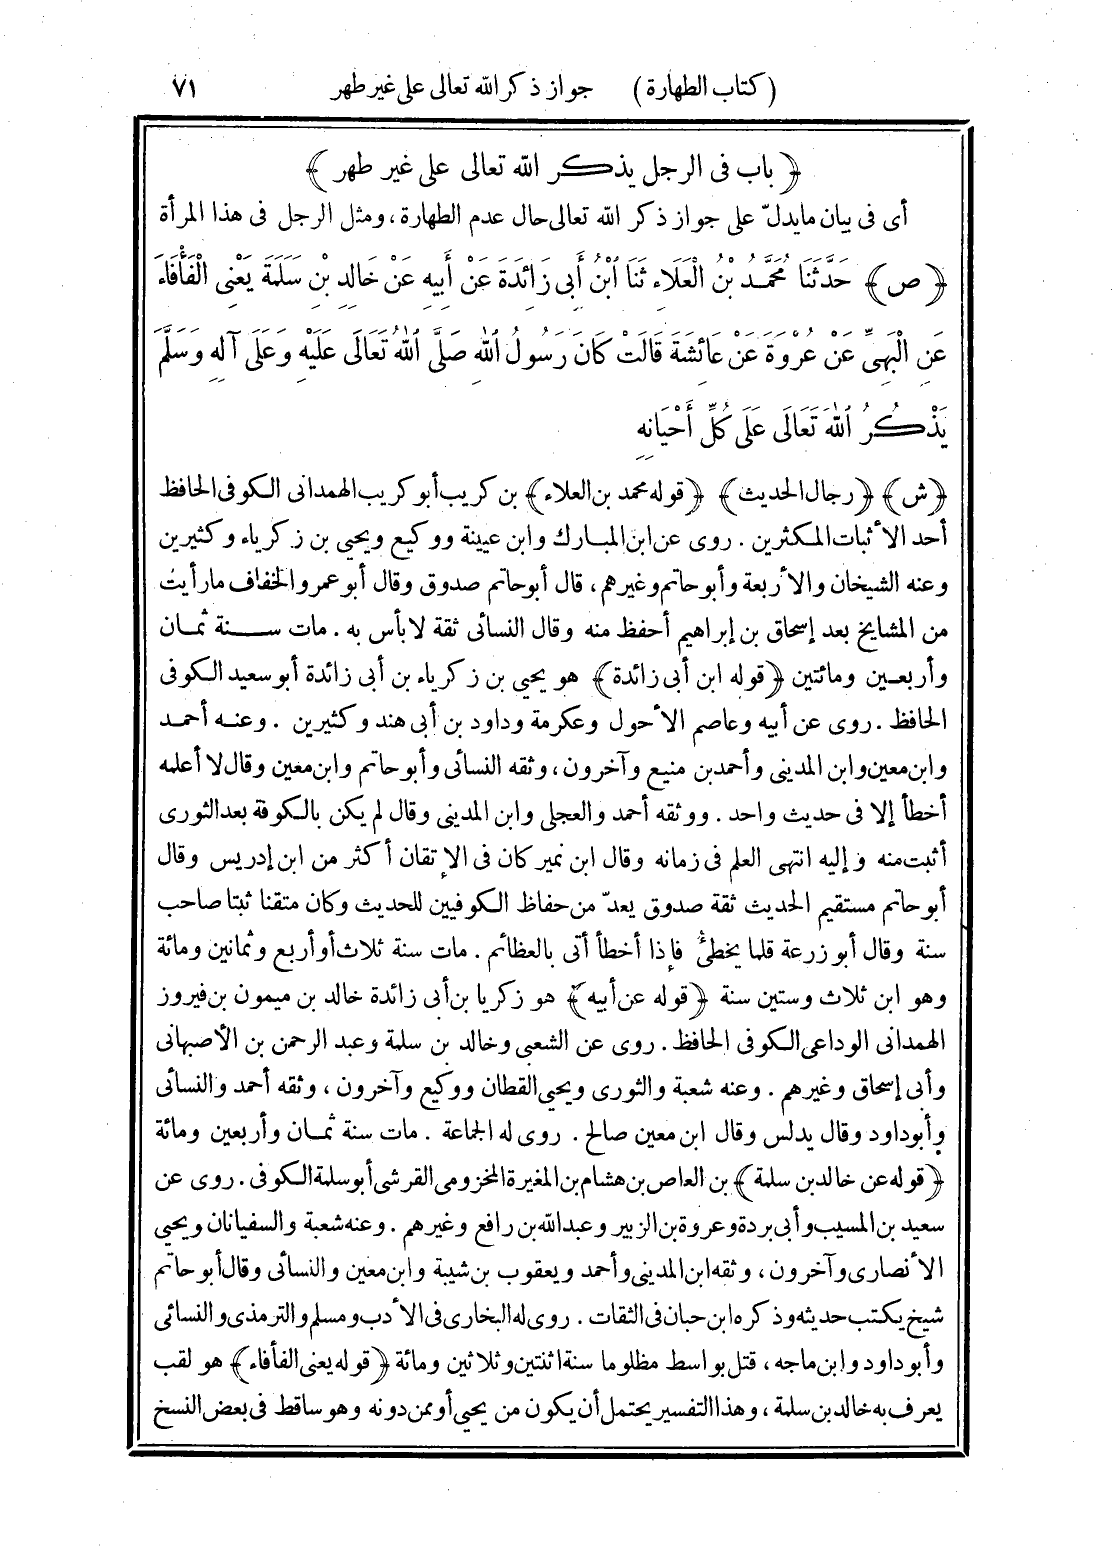 (كتاب الطهارة) جواز ذكر الله تعالى على غير طهر ٧١
﴿ باب فى الرجل يذكر الله تعالى على غير طهر ﴾
أى فى بيان مايدلّ على جواز ذكر الله تعالى حال عدم الطهارة، ومثل الرجل فى هذا المرأة
﴿ ص ﴾ حَدَّثَنَا مُحَمَّدُ بْنُ الْعَلَاءِ ثَنَا ابْنُ أَبِى زَائِدَةَ عَنْ أَبِيهِ عَنْ خَالِدِ بْنِ سَلَمَةَ يَعْنِى الْفَأْفَاءَ
عَنِ الْبَهِىِّ عَنْ عُرْوَةَ عَنْ عَائِشَةَ قَالَتْ كَانَ رَسُولُ ٱللهِ صَلَّى ٱللهُ تَعَالَى عَلَيْهِ وَعَلَى آلِهِ وَسَلَّمَ
يَذْكُرُ ٱللهَ تَعَالَى عَلَى كُلِّ أَحْيَانِهِ
﴿ش﴾ ﴿رجال الحديث﴾ ﴿قوله محمد بن العلاء﴾ بن كريب أبو كريب الهمدانى الكوفى الحافظ
أحد الأثبات المكثرين . روى عن ابن المبارك وابن عيينة ووكيع ويحيى بن زكرياء وكثيرين
وعنه الشيخان والأربعة وأبو حاتم وغيرهم، قال أبو حاتم صدوق وقال أبو عمرو الخفاف مارأيت
من المشايخ بعد إسحاق بن إبراهيم أحفظ منه وقال النسائى ثقة لابأس به . مات سنة ثمان
وأربعين ومائتين ﴿قوله ابن أبى زائدة﴾ هو يحيى بن زكرياء بن أبى زائدة أبو سعيد الكوفى
الحافظ . روى عن أبيه وعاصم الأحول وعكرمة وداود بن أبى هند وكثيرين . وعنه أحمد
وابن معين وابن المدينى وأحمد بن منيع وآخرون، وثقه النسائى وأبو حاتم وابن معين وقال لا أعلمه
أخطأ إلا فى حديث واحد . ووثقه أحمد والعجلى وابن المدينى وقال لم يكن بالكوفة بعد الثورى
أثبت منه وإليه انتهى العلم فى زمانه وقال ابن نمير كان فى الإتقان أكثر من ابن إدريس وقال
أبو حاتم مستقيم الحديث ثقة صدوق يعدّ من حفاظ الكوفيين للحديث وكان متقنا ثبتا صاحب
سنة وقال أبو زرعة قلما يخطئ فإذا أخطأ أتى بالعظائم . مات سنة ثلاث أو أربع وثمانين ومائة
وهو ابن ثلاث وستين سنة ﴿قوله عن أبيه﴾ هو زكريا بن أبى زائدة خالد بن ميمون بن فيروز
الهمدانى الوداعى الكوفى الحافظ . روى عن الشعبى وخالد بن سلمة وعبد الرحمن بن الأصبهانى
وأبى إسحاق وغيرهم . وعنه شعبة والثورى ويحيى القطان ووكيع وآخرون، وثقه أحمد والنسائى
وأبو داود وقال يدلس وقال ابن معين صالح . روى له الجماعة . مات سنة ثمان وأربعين ومائة
﴿قوله عن خالد بن سلمة﴾ بن العاص بن هشام بن المغيرة المخزومى القرشى أبو سلمة الكوفى . روى عن
سعيد بن المسيب وأبى بردة وعروة بن الزبير وعبد الله بن رافع وغيرهم . وعنه شعبة والسفيانان ويحيى
الأنصارى وآخرون، وثقه ابن المدينى وأحمد ويعقوب بن شيبة وابن معين والنسائى وقال أبو حاتم
شيخ يكتب حديثه وذكره ابن حبان فى الثقات . روى له البخارى فى الأدب ومسلم والترمذى والنسائى
وأبو داود وابن ماجه، قتل بواسط مظلوما سنة اثنتين وثلاثين ومائة ﴿قوله يعنى الفأفاء﴾ هو لقب
يعرف به خالد بن سلمة، وهذا التفسير يحتمل أن يكون من يحيى أو ممن دونه وهو ساقط فى بعض النسخ